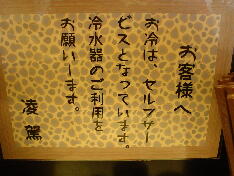 お客様へ
お冷は、セルフサー
ビスとなっています。
冷水器のご利用を
お願いーます。
凌駕